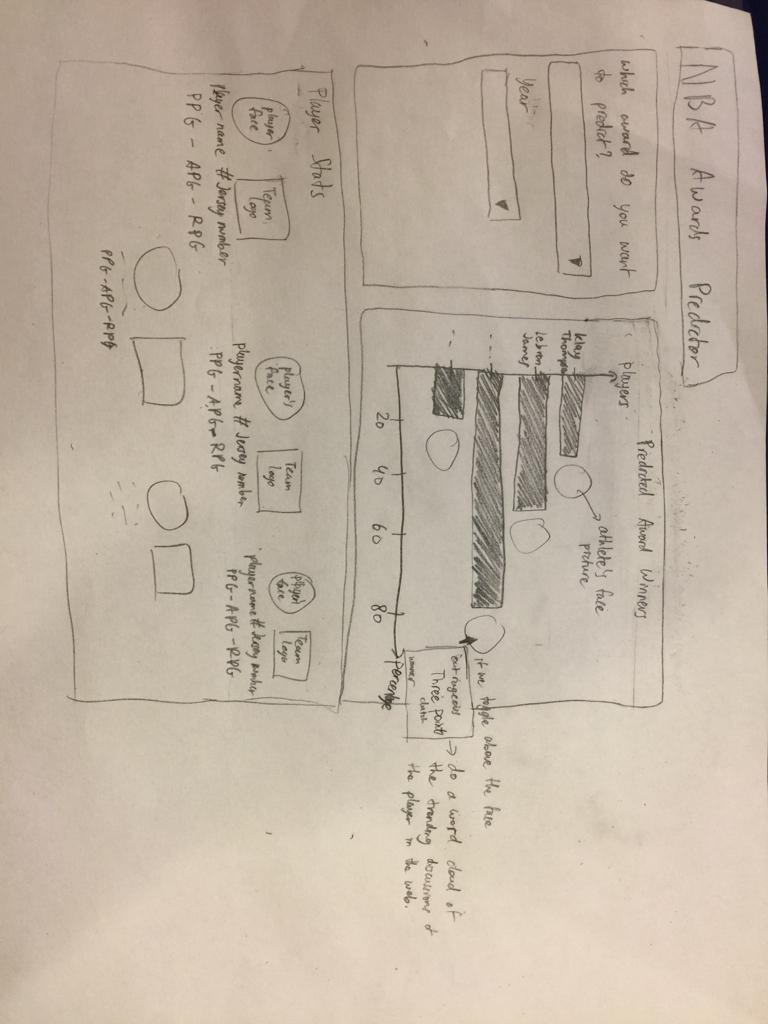 NBA Awards Predictor
Which award do you want
to predict?
Year
Predicted Award Winners
players
Klay
Thompson
Lebron
James
athlete's face
picture
20
40
60
80
percentage
if we toggle above the face
outrageous
Three point
clutch
→ do a word cloud of
the trending discussions of
the player in the web.
Player Stats
player
face
Team
logo
Player name # Jersey number
PPG - APG - RPG
PPG-APG-RPG
player's
face
Team
logo
playername # Jersey number
PPG - APG - RPG
player
face
Team
logo
playername # Jersey number
PPG - APG - RPG